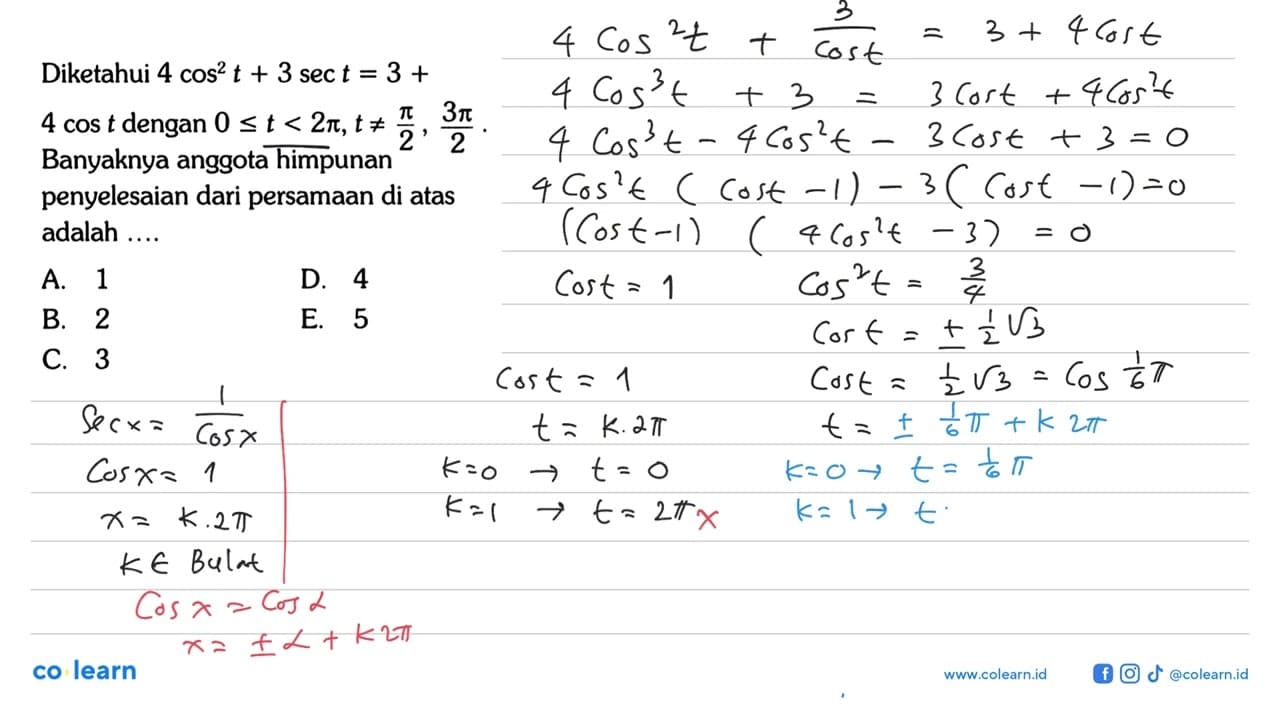 Diketahui 4 cos² t + 3 sec t = 3 +
4 cos t dengan 0 ≤ t < 2π, t ≠ π/2, 3π/2.
Banyaknya anggota himpunan
penyelesaian dari persamaan di atas
adalah ....
A. 1
B. 2
C. 3
D. 4
E. 5
4 Cos²t + 3/Cost = 3 + 4 Cost
4 Cos³t + 3 = 3 Cost + 4 Cos²t
4 Cos³t - 4 Cos²t - 3 Cost + 3 = 0
4 Cos²t (Cost - 1) - 3 (Cost - 1) = 0
(Cost - 1) (4 Cos²t - 3) = 0
Cost = 1
Cos²t = 3/4
Cos t = ± 1/2 √3
Cost = 1
t = k. 2π
k=0 → t = 0
k=1 → t = 2π x
Cost = 1/2 √3 = Cos 1/6 π
t = ± 1/6 π + k 2π
k=0 → t = 1/6 π
k=1 → t
Sec x = 1/Cos x
Cos x = 1
x = k. 2π
k ∈ Bulat
Cos x = Cos α
x = ± α + k 2π
co learn
www.colearn.id
@colearn.id